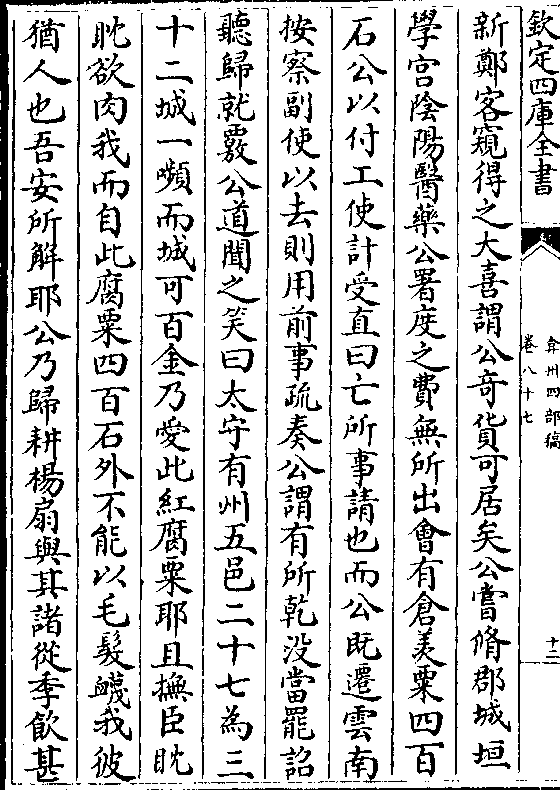 欽定四庫全書
弇州四部稿
卷八十七
十二
新鄭客窺得之大喜謂公竒貨可居矣公嘗脩郡城垣
學宫陰陽醫藥公署度之費無所出會有倉羡粟四百
石公以付工使計受直曰亡所事請也而公既遷雲南
按察副使以去則用前事疏奏公謂有所乾没當罷詔
聽歸就覈公道聞之笑曰太守有州五邑二十七為三
十二城一嚬而城可百金乃愛此紅腐粟耶且撫臣眈
眈欲肉我而自此腐粟四百石外不能以毛髮衊我彼
猶人也吾安所解耶公乃歸耕楊扇與其諸從季飲甚